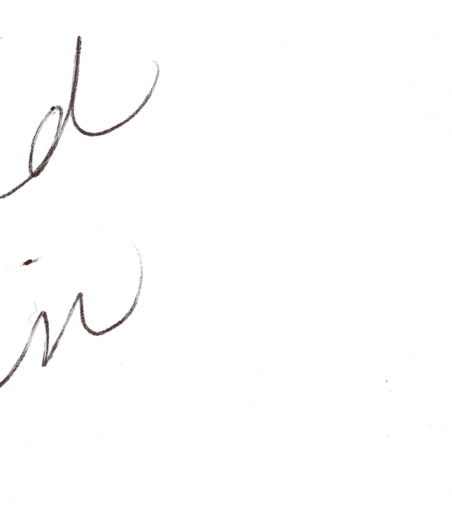 d
in